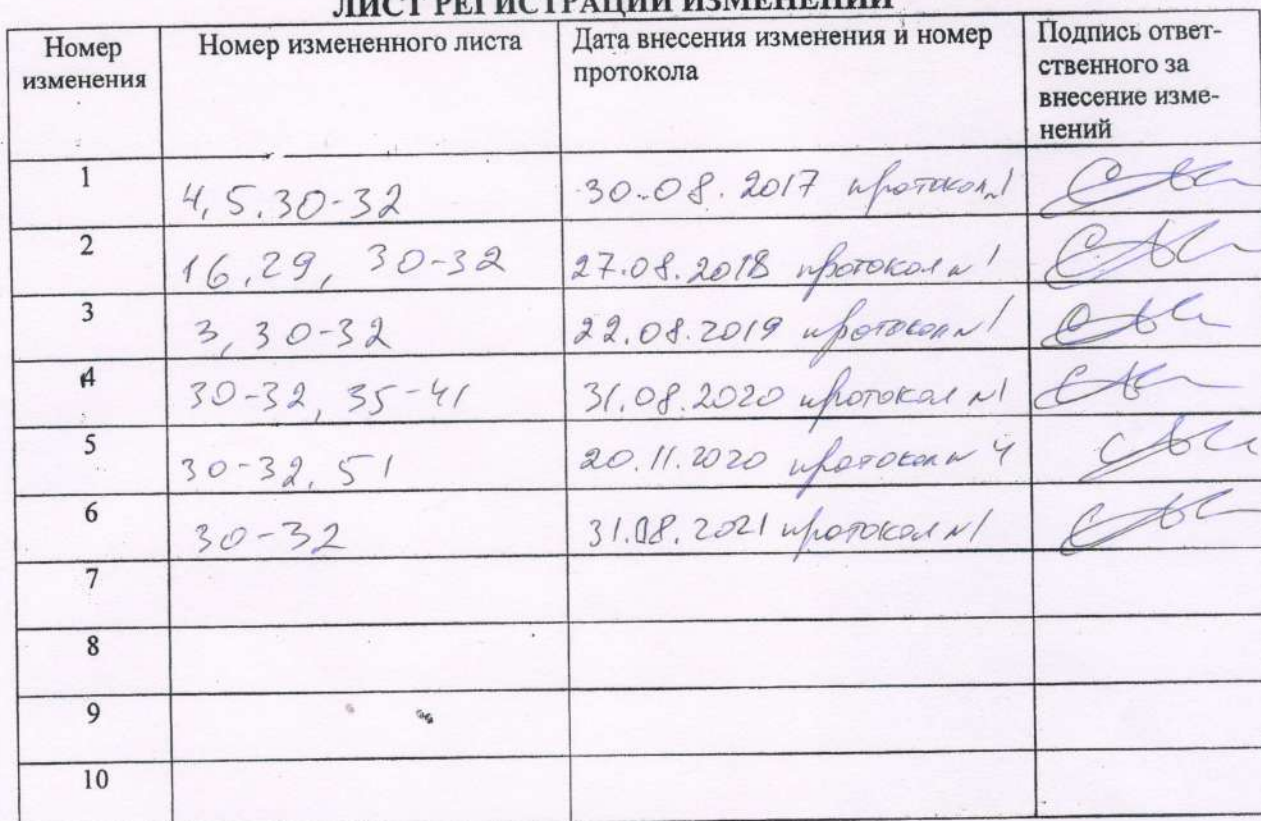 ЛИСТ РЕГИСТРАЦИИ ИЗМЕНЕНИЙ
Номер изменения
Номер измененного листа
Дата внесения изменения и номер
протокола
Подпись ответ-
ственного за
внесение изме-
нений
1
4, 5, 30-32
30.08.2017 протокол №1
2
16, 29, 30-32
27.08.2018 протокол №1
3
3, 30-32
22.08.2019 протокол №1
4
30-32, 35-41
31.08.2020 протокол №1
5
30-32, 51
20.11.2020 протокол №4
6
30-32
31.08.2021 протокол №1
7
8
9
10